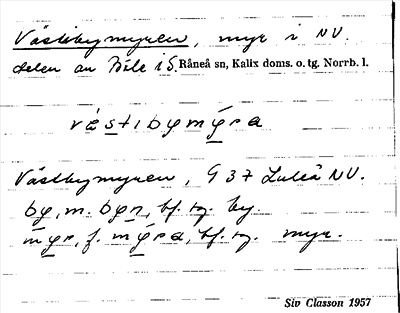 Västibymyren, myr i NV.
delen av Böle i S. Råneå sn, Kalix doms. o. tg. Norrb. l.
västibymȳra
Västbymyren, G 37 Luleå NV.
by, m. byn, bf. sg. by
myr, f. mȳra, bf. sg. myr.
Siv Classon 1957